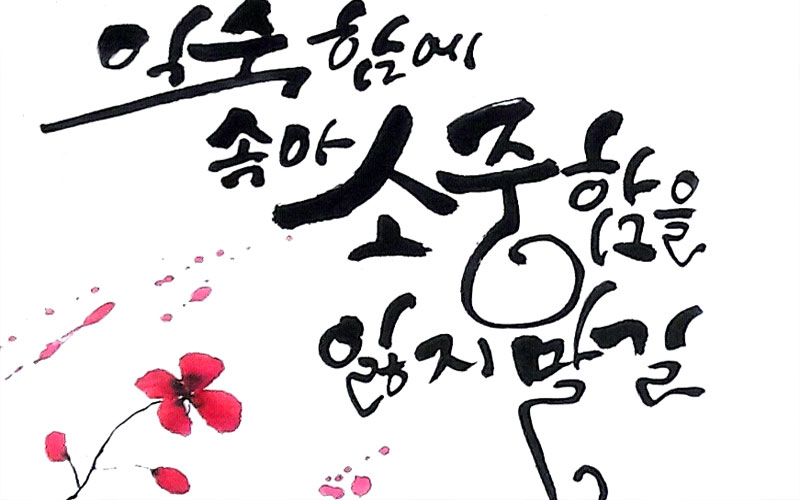 익숙함에
속아 소중함을
잃지말길